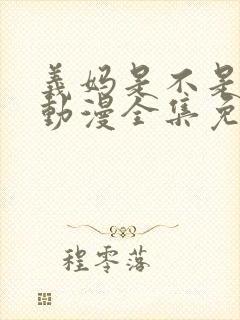 義妈是不是
動漫全集免
程零落